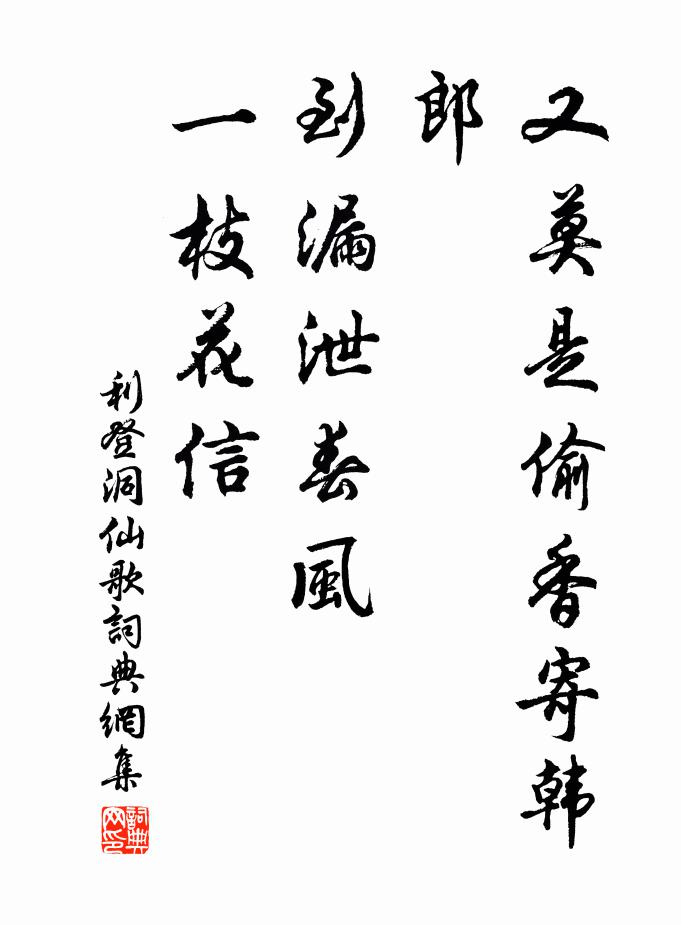 又莫是偷香寄韩
郎
到漏泄春風
一枝花信
利登洞仙歌詞典網集
詞典网印